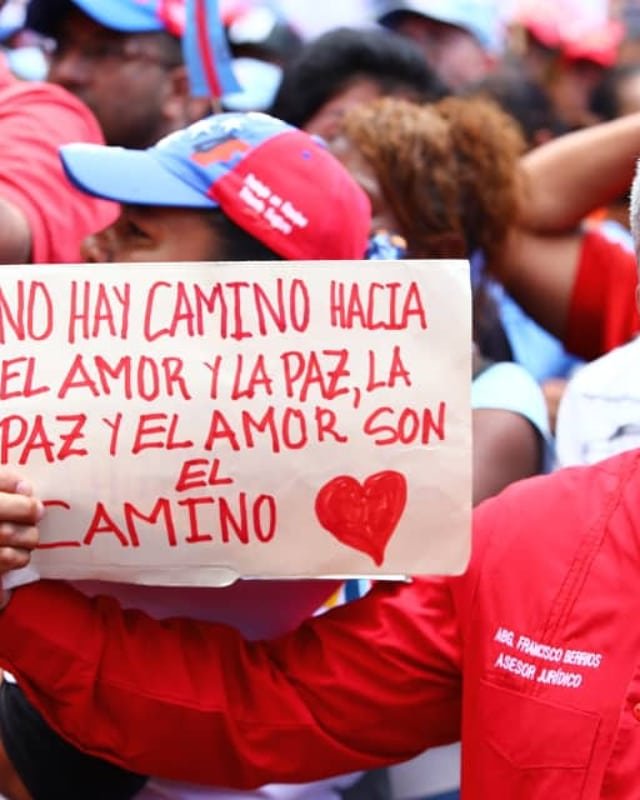 NO HAY CAMINO HACIA
EL AMOR Y LA PAZ, LA
PAZ Y EL AMOR SON
EL
CAMINO
ABG. FRANCISCO BERRIOS
ASESOR JURÍDICO